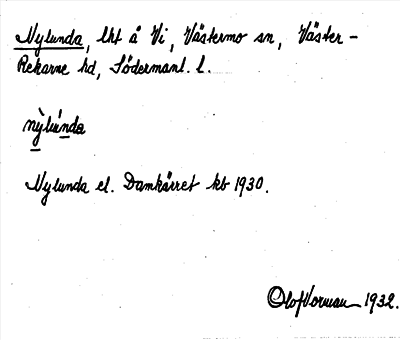 Nylunda, lht å Vi, Västermo sn, Väster-
Rekarne hd, Södermanl. l.
nỳlúnda
Nylunda el. Damkärret kb 1930.
Olof Norman 1932.